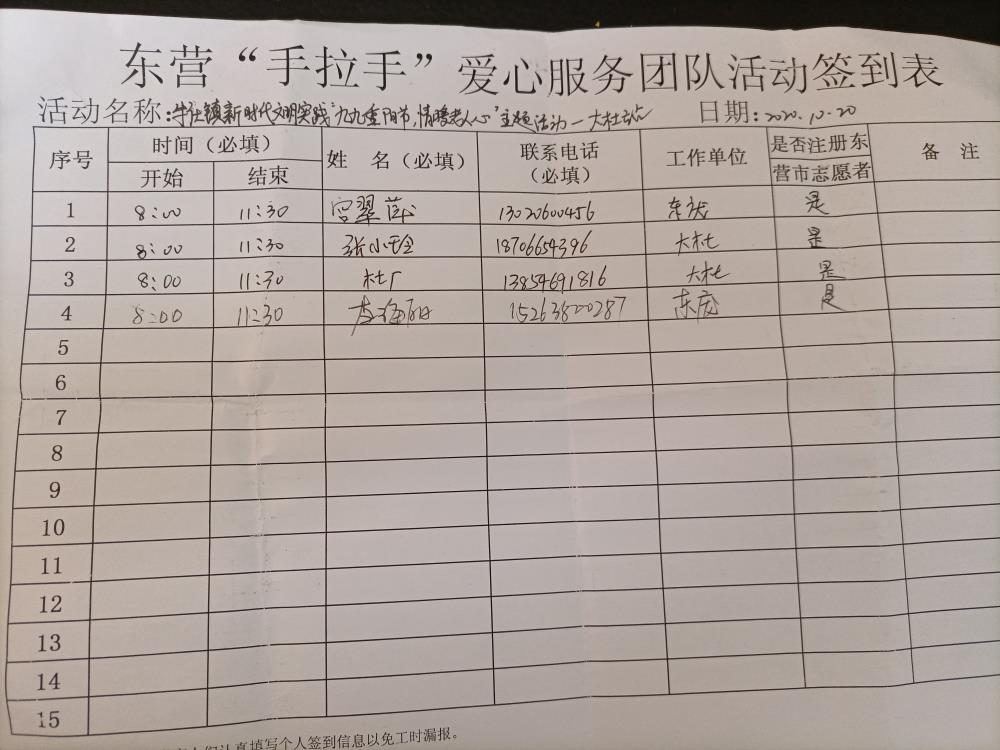 东营“手拉手”爱心服务团队活动签到表
活动名称:牛庄镇新时代文明实践“九九重阳节,情暖老人心”主题活动一大杜站 日期:2020.10.20
序号 时间（必填） 姓 名（必填） 联系电话（必填） 工作单位 是否注册东营市志愿者 备 注
开始 结束
1 8:00 11:30 宫翠 13020600456 是
2 8:00 11:30 张小 18706654396 大杜 是
3 8:00 11:30 杜厂 13854691816 大杜 是
4 8:00 11:30 李海 15263800287 是
5
6
7
8
9
10
11
12
13
14
15
认真填写个人签到信息以免工时漏报。